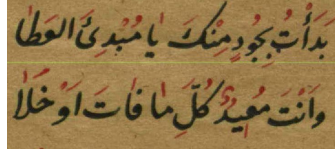 بَدَأْتُ بِجُودٍ مِنْكَ يَا مُبْدِئَ العَطَا
وَاَنْتَ مُعِيدُ كُلِّ مَا فَاتَ اَوْ خَلَا